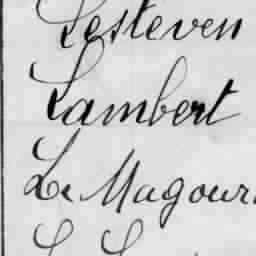 Lesteven
Lambert
Le Magour